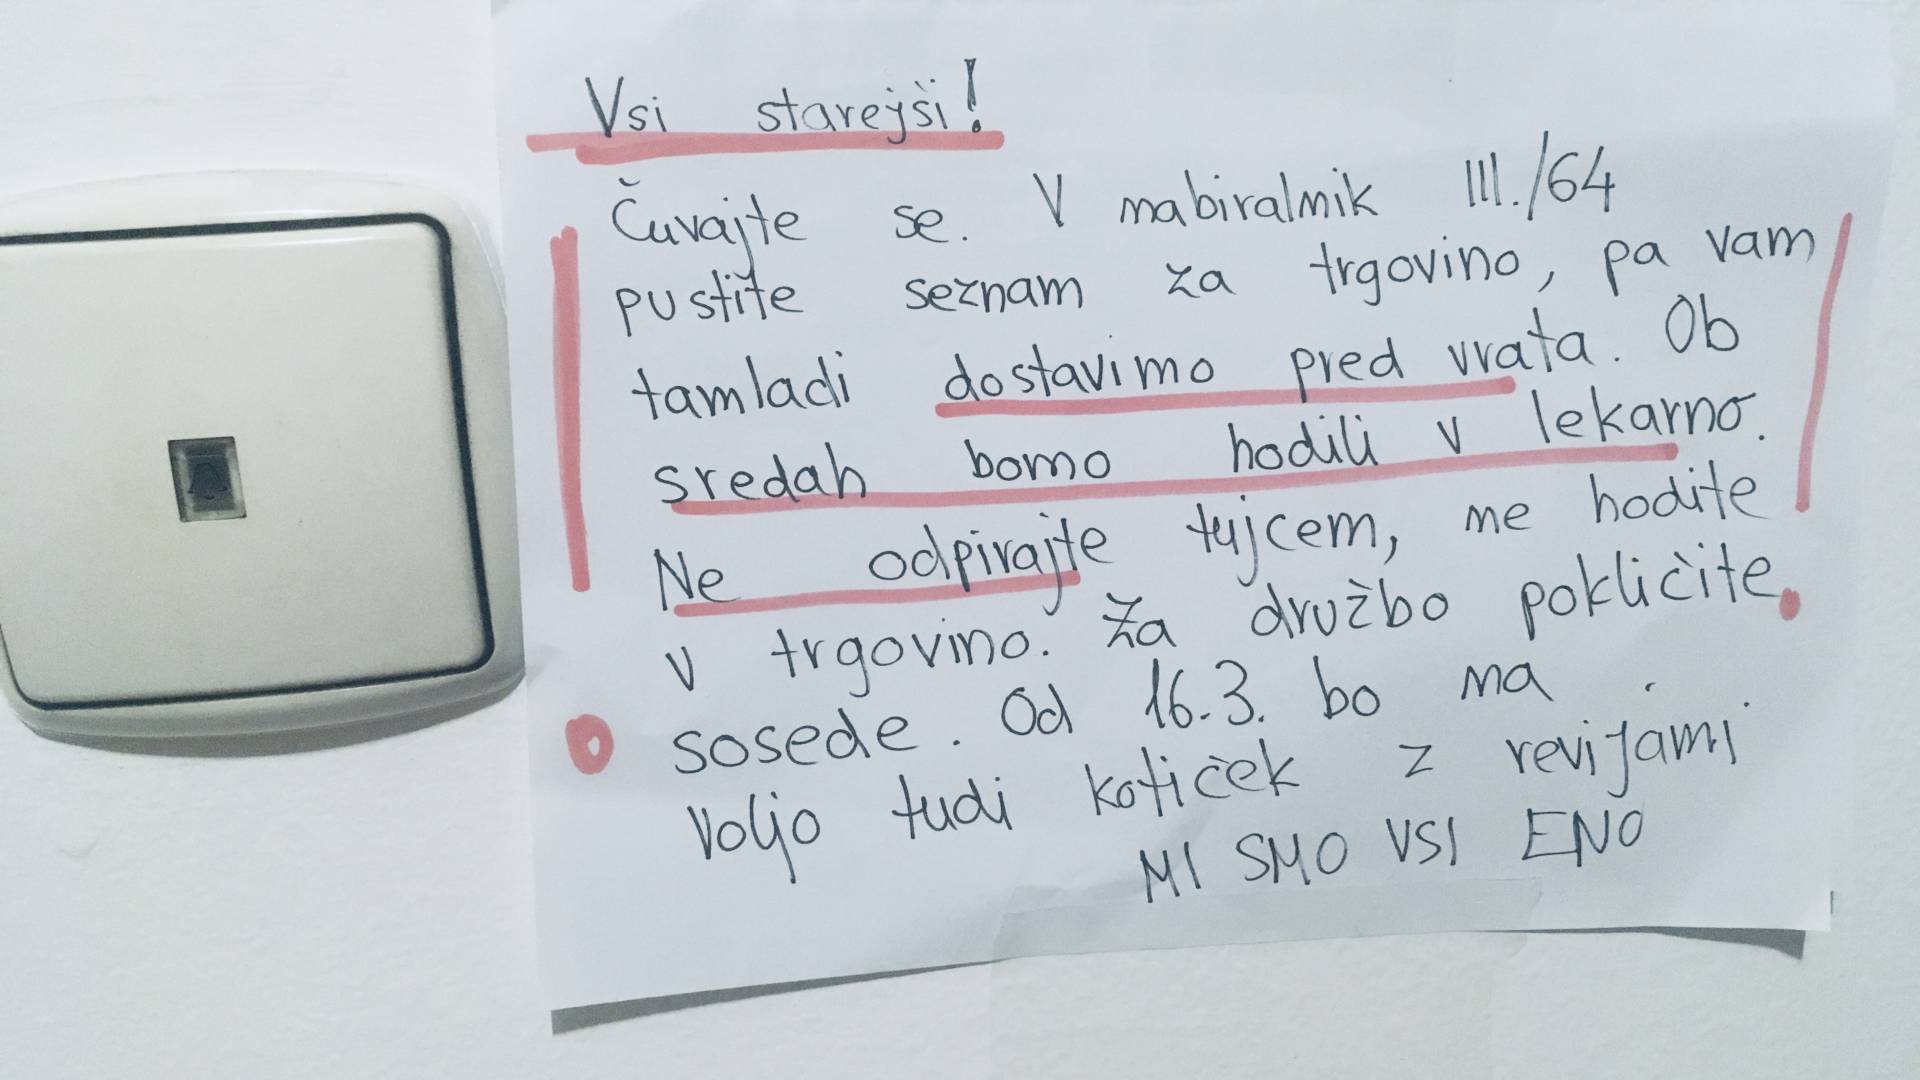 Vsi starejši!
Čuvajte se. V nabiralnik III./64
pustite seznam za trgovino, pa vam
tamladi dostavimo pred vrata. Ob
sredah bomo hodili v lekarno.
Ne odpirajte tujcem, ne hodite
v trgovino. Za družbo pokličite
sosede. Od 16.3. bo na
voljo tudi kotiček z revijami
MI SMO VSI ENO